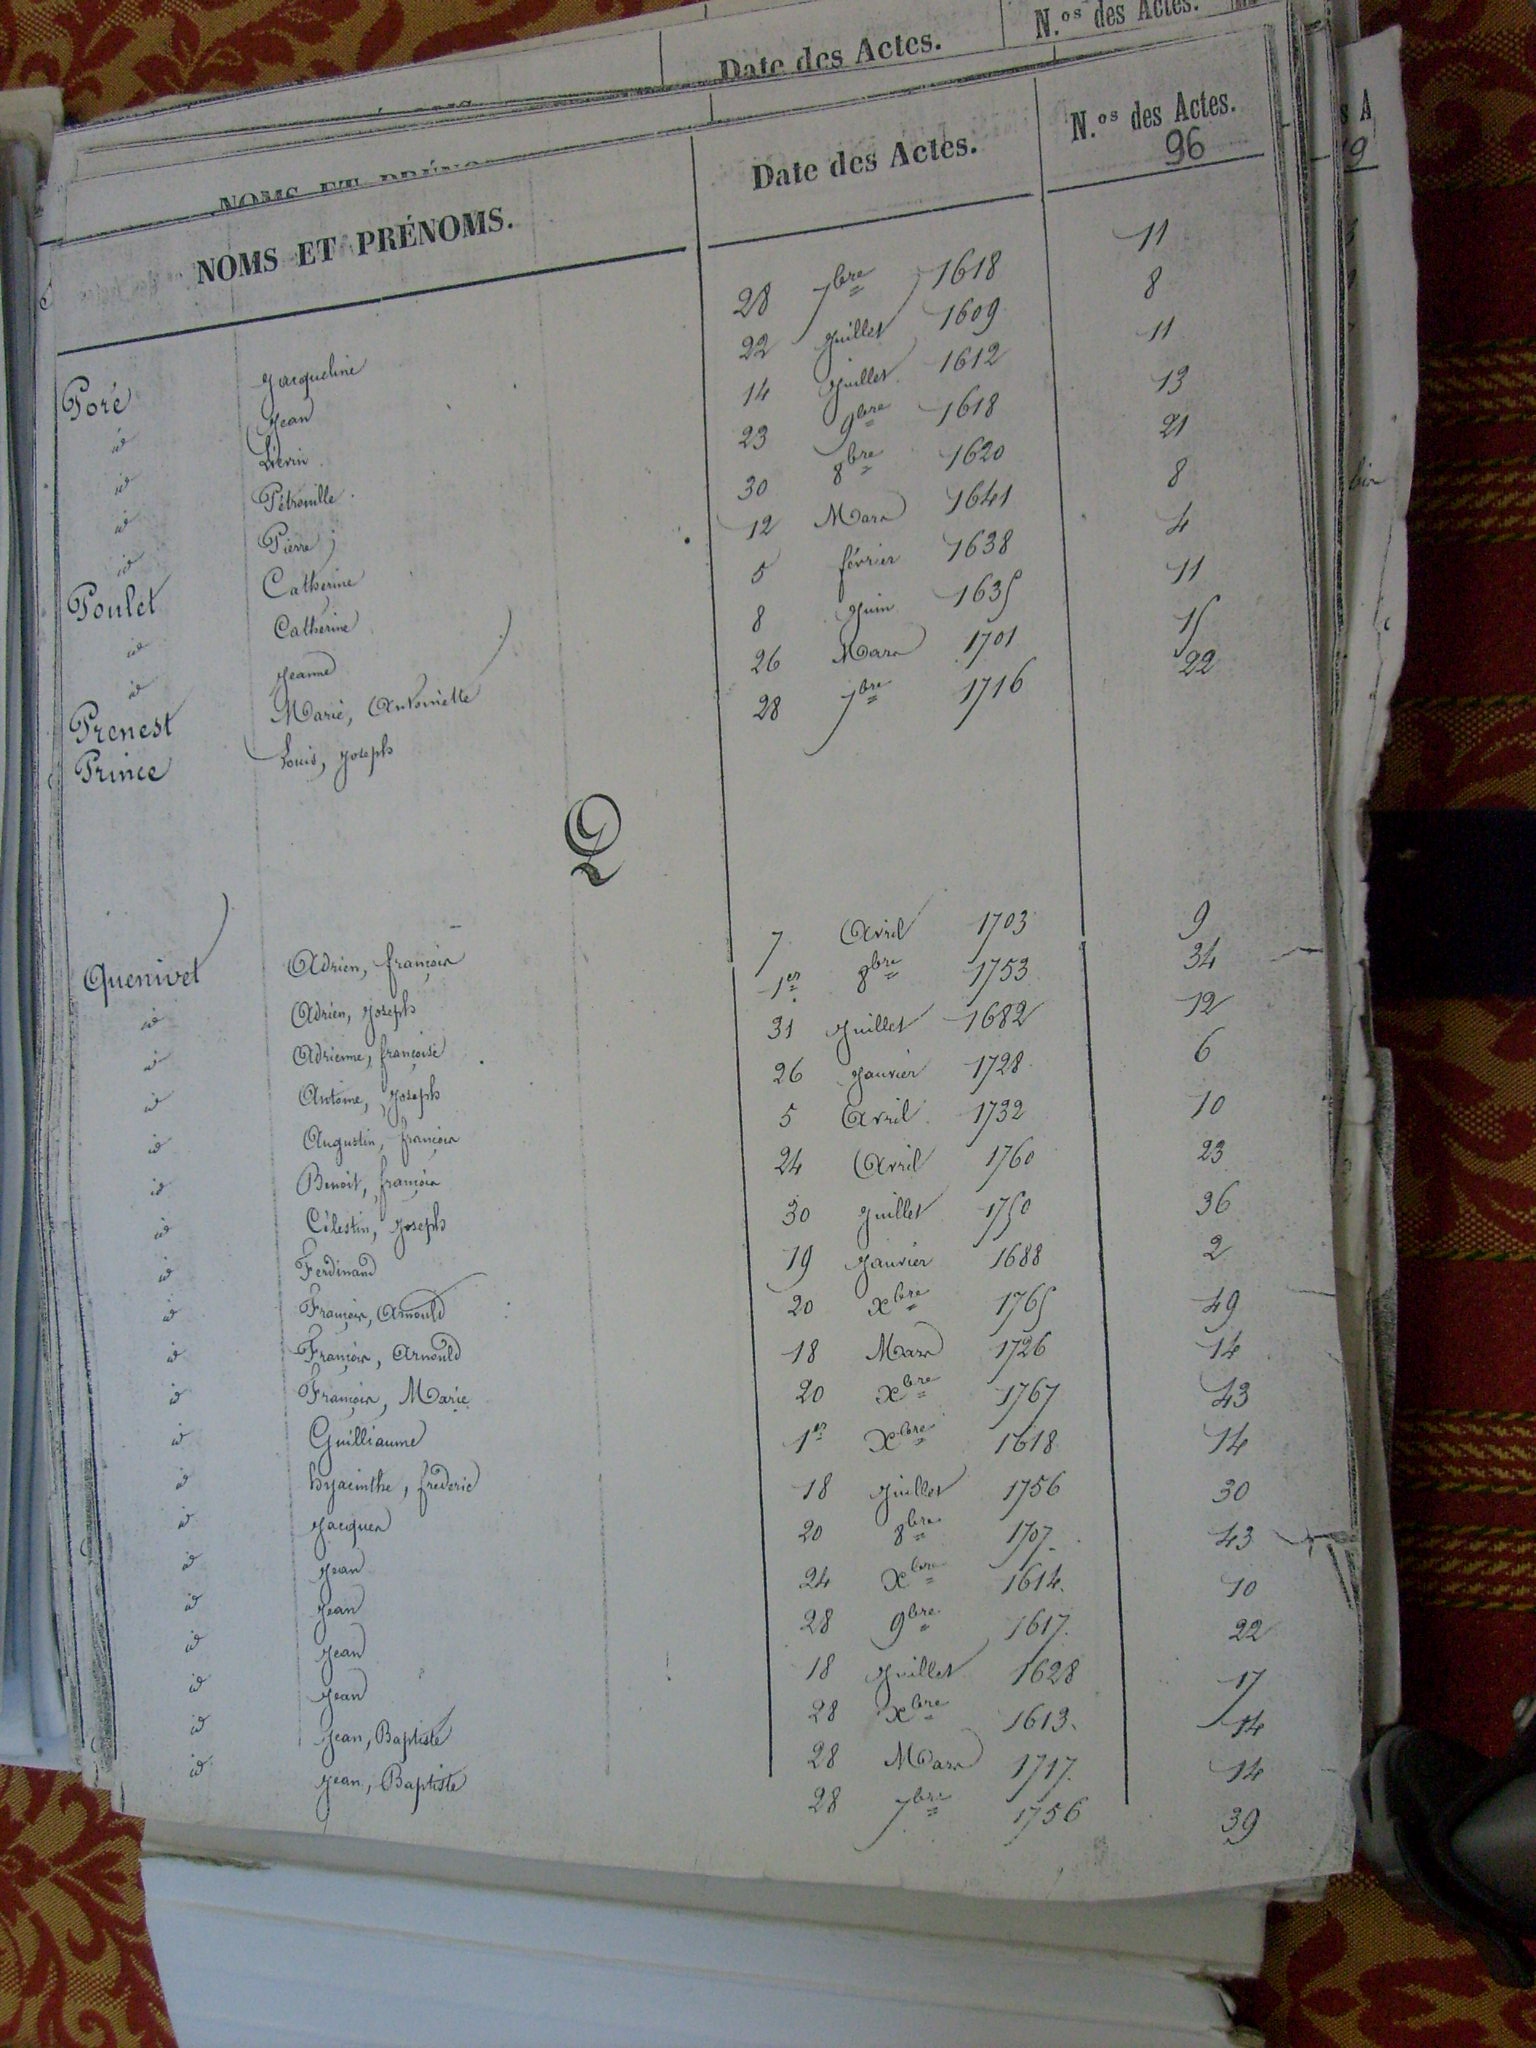 Date des Actes. N.os des Actes.
NOMS ET PRÉNOMS. Date des Actes. N.os des Actes.
96
Poré Jacqueline 28 7bre 1618 11
id Jean 22 Juillet 1609 8
id Liévin 14 Juillet 1612 11
id Pétronille 23 9bre 1618 13
id Pierre 30 8bre 1620 21
Poulet Catherine 12 Mars 1641 8
id Catherine 5 février 1638 4
id Jeanne 8 Juin 1635 11
Prenest Marie, Antoinette 26 Mars 1701 15
Prince Louis, Joseph 28 7bre 1716 22
Q
Quenivet Adrien, françois 7 Avril 1703 9
id Adrien, Joseph 1er 8bre 1753 34
id Adrienne, françoise 31 Juillet 1682 12
id Antoine, Joseph 26 Janvier 1728 6
id Augustin, françois 5 Avril 1732 10
id Benoit, françois 24 Avril 1760 23
id Célestin, Joseph 30 Juillet 1750 36
id Ferdinand 19 Janvier 1688 2
id François, Arnould 20 xbre 1765 49
id François, Arnould 18 Mars 1726 14
id François, Marie 20 xbre 1767 43
id Guilliaume 1er Xbre 1618 14
id hyacinthe, fréderic 18 Juillet 1756 30
id Jacques 20 8bre 1707 43
id Jean 24 xbre 1614 10
id Jean 28 9bre 1617 22
id Jean 18 Juillet 1628 17
id Jean 28 xbre 1613 14
id Jean, Baptiste 28 Mars 1717 14
id Jean, Baptiste 28 7bre 1756 39